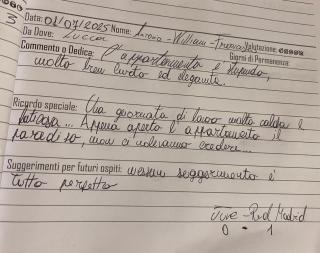 3
Data: 01/07/2025 Nome: - William -
Valutazione:
Da Dove: Lucca
Giorni di Permanenza:
Commento o Dedica: L'appartamento è stupendo,
molto ben curato ed elegante.
Ricordo speciale: Una giornata di lavoro molto calda e
faticosa... Appena aperto l'appartamento il
paradiso, non ci volevamo credere...
Suggerimenti per futuri ospiti: nessun suggerimento è
tutto perfetto
Juve - Real Madrid
0 - 1